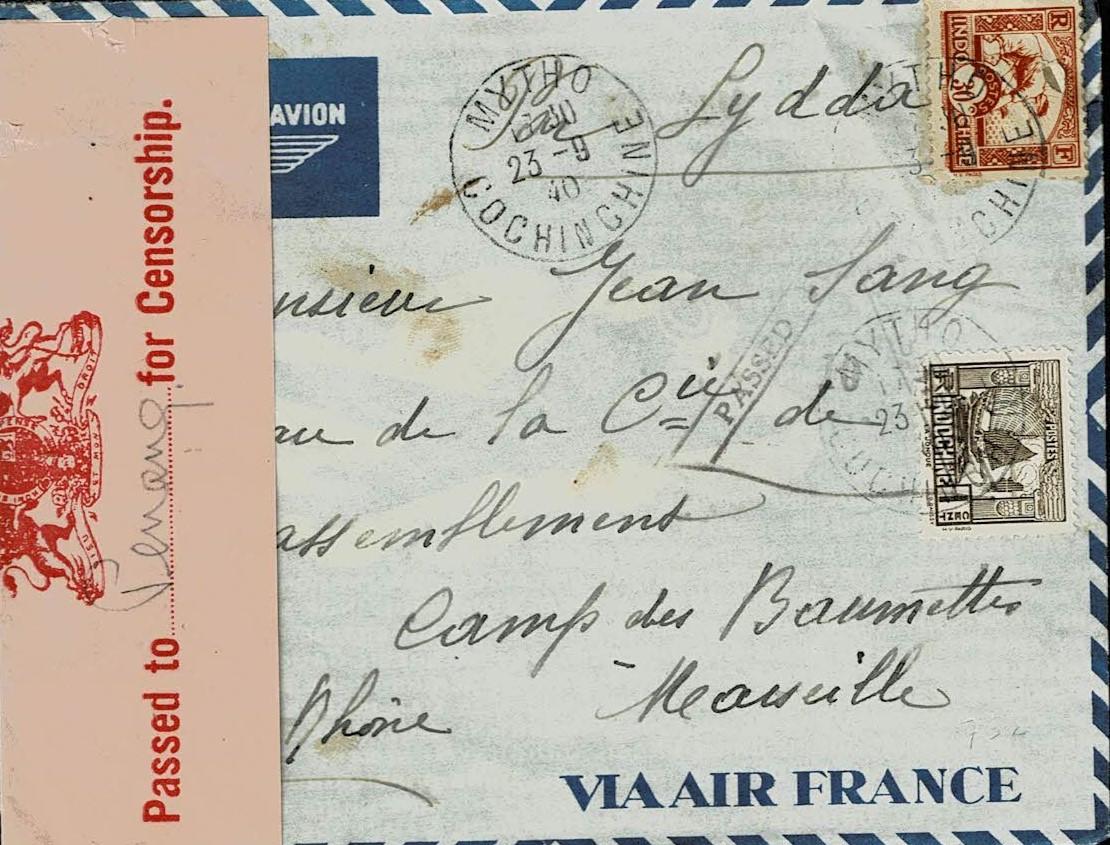 Passed to Penang for Censorship.
DROIT
ET MON
DIEU
AVION
MYTHO
23 -9
40
COCHINCHINE
Par Lydda
RF
INDOCHINE
POSTES
30
nsieur Jean Sang
de la Cie de
PASSED
MYTHO
23
RF
INDOCHINE
POSTES
1 CENT
assemblement
Camp des Baumettes
Marseille
Rhône
VIA AIR FRANCE